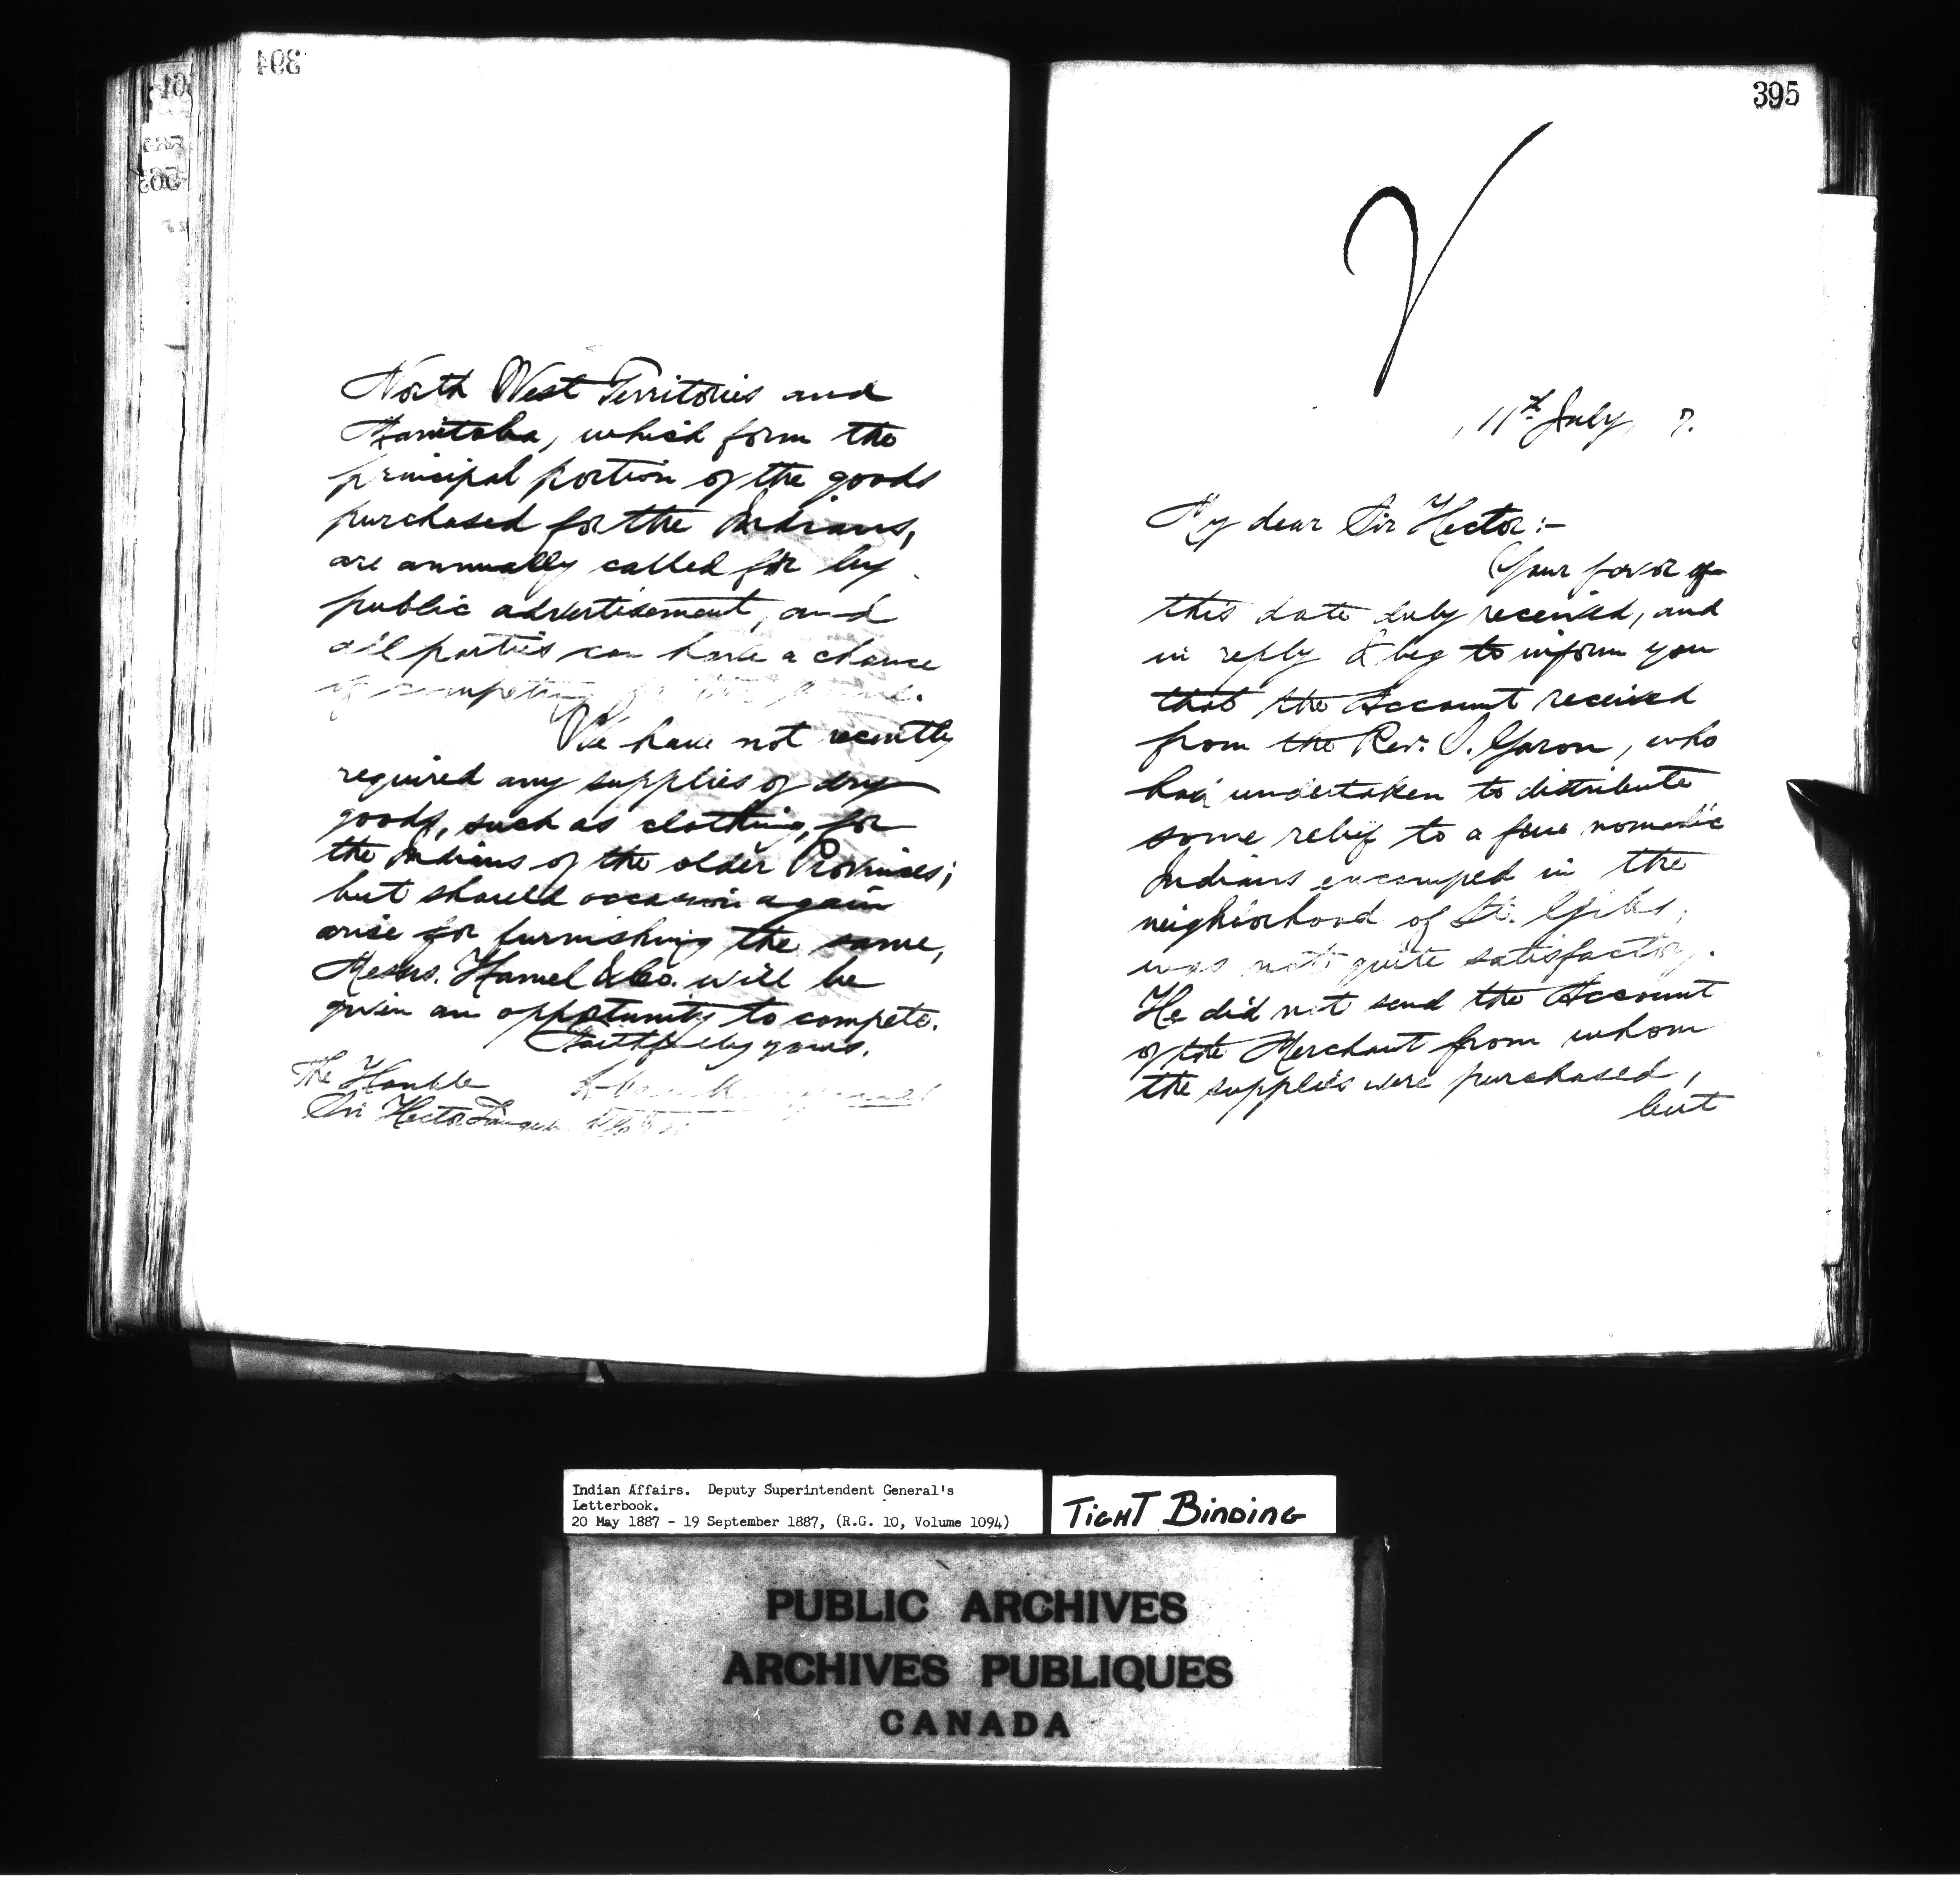 394
North West Territories and
Manitoba, which form the
principal portion of the goods
purchased for the Indians,
are annually called for by
public advertisement, and
all parties can have a chance
of competing for the same.
We have not recently
required any supplies of dry
goods, such as clothing, for
the Indians of the older Provinces;
but should occasion again
arise for furnishing the same,
Messrs. Hamel & Co. will be
given an opportunity to compete.
Faithfully yours,
The Honble
Sir Hector Langevin
395
11th July, 7.
My dear Sir Hector:-
Your favor of
this date duly received, and
in reply I beg to inform you
that the Account received
from the Rev. J. Garon, who
had undertaken to distribute
some relief to a few nomadic
Indians encamped in the
neighborhood of St. Giles,
was not quite satisfactory.
He did not send the Account
of the Merchant from whom
the supplies were purchased,
but
Indian Affairs. Deputy Superintendent General's
Letterbook.
20 May 1887 - 19 September 1887, (R.G. 10, Volume 1094)
TIGHT BINDING
PUBLIC ARCHIVES
ARCHIVES PUBLIQUES
CANADA